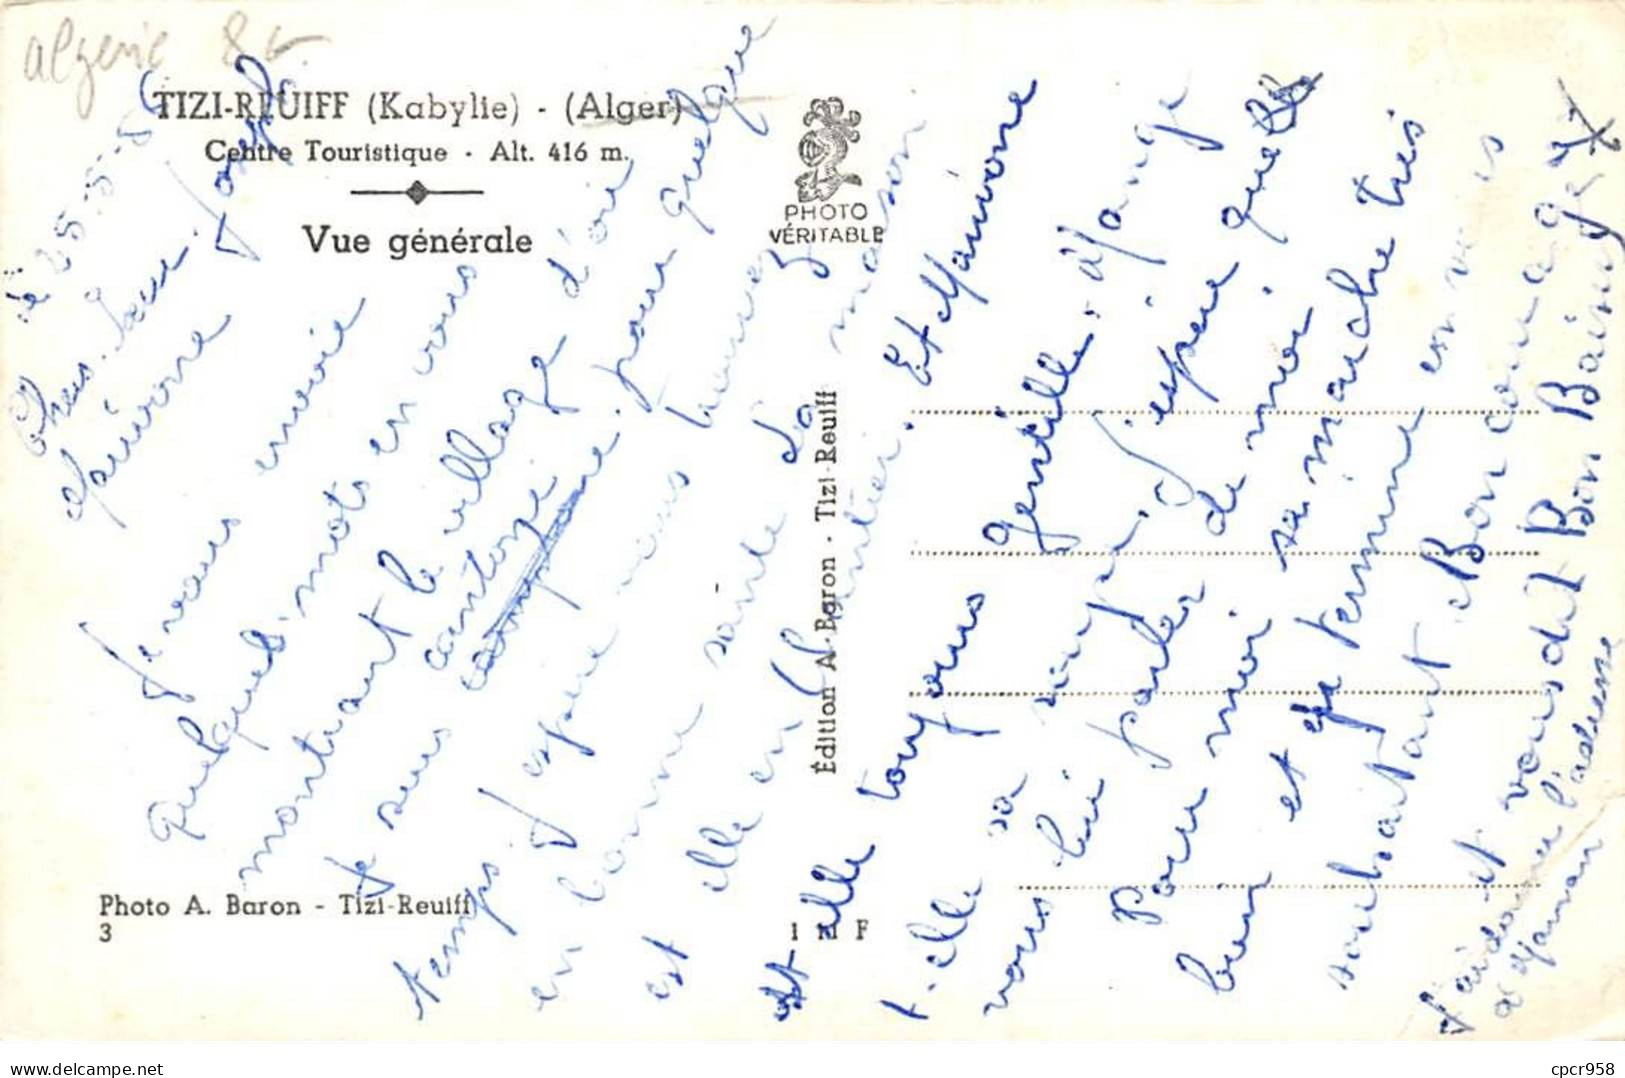 algerie 8€
TIZI-REUIFF (Kabylie) - (Alger)
Centre Touristique - Alt. 416 m.
Vue générale
PHOTO
VÉRITABLE
Édition A. Baron - Tizi-Reuiff
Photo A. Baron - Tizi-Reuiff
3
I M F
le 25-5-56
Joseph
Je vous envoie
quelques mots en vous
montrant le village d'ou
Je suis
pour quelque
temps. J'espere vous trouvez
en bonne santé La maison
est elle en
Et Mauricne
est elle toujours gentille. Mange
t. elle sa soupe. J'espere quelle
vous lui parler de moi.
Pour moi sa marche tres
bien et je termine en vous
souhaitant Bon courage
et vous dit Bon Baiser
J'ai donner l'adresse
a Maman